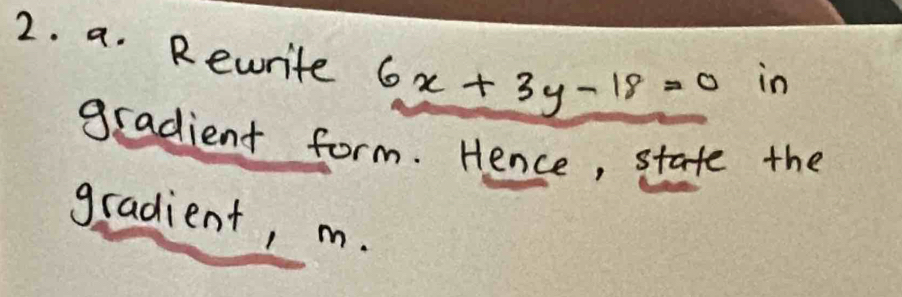 2. a. Rewrite 6x + 3y - 18 = 0 in
gradient form. Hence, state the
gradient, m.